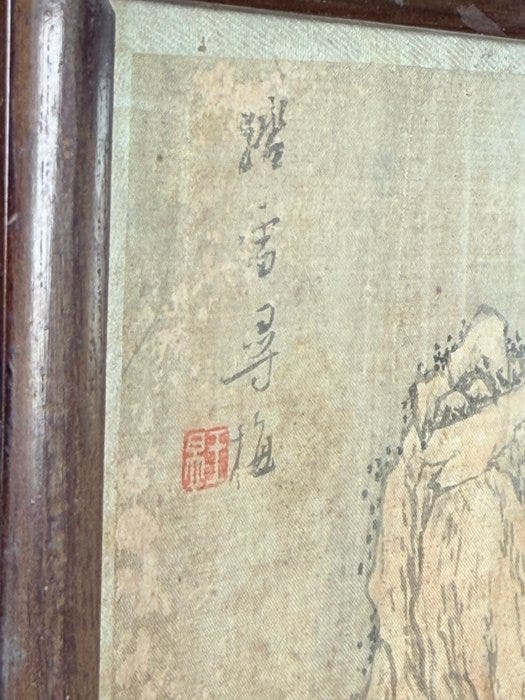 踏雪尋梅